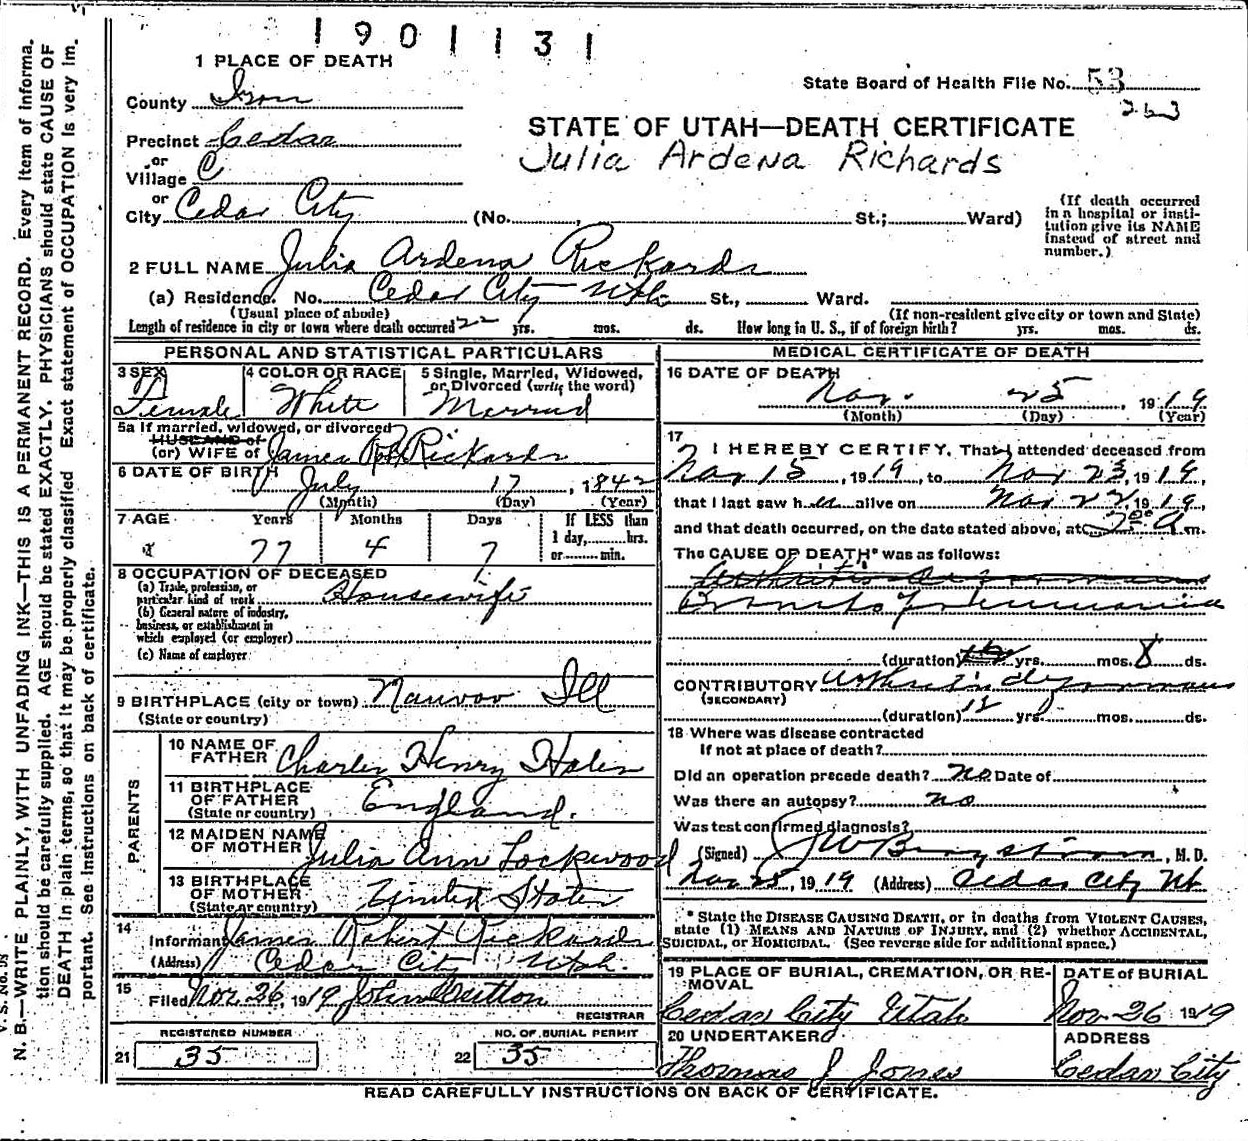 1901131
1 PLACE OF DEATH
State Board of Health File No. 53
263
County Iron
STATE OF UTAH—DEATH CERTIFICATE
Precinct Cedar
Julia Ardena Richards
or
Village C
or
City Cedar City (No. , St.; Ward)
(If death occurred in a hospital or insti-
tution give its NAME instead of street and number.)
2 FULL NAME Julia Ardena Rickards
(a) Residence. No. Cedar City Utah St., Ward.
(Usual place of abode) (If non-resident give city or town and State)
Length of residence in city or town where death occurred 22 yrs. mos. ds. How long in U. S., if of foreign birth? yrs. mos. ds.
PERSONAL AND STATISTICAL PARTICULARS
3 SEX Female
4 COLOR OR RACE White
5 Single, Married, Widowed, or Divorced (write the word) Married
5a If married, widowed, or divorced
HUSBAND of
(or) WIFE of James Rickards
6 DATE OF BIRTH July 17, 1842
(Month) (Day) (Year)
7 AGE Years Months Days If LESS than
77 4 7 1 day, hrs.
or min.
8 OCCUPATION OF DECEASED
(a) Trade, profession, or
particular kind of work Housewife
(b) General nature of industry,
business, or establishment in
which employed (or employer)
(c) Name of employer
9 BIRTHPLACE (city or town) Nauvoo Ill
(State or country)
PARENTS
10 NAME OF
FATHER Charles Henry Hales
11 BIRTHPLACE
OF FATHER England.
(State or country)
12 MAIDEN NAME
OF MOTHER Julia Ann Lockwood
13 BIRTHPLACE
OF MOTHER United States
(State or country)
14
Informant James Robert Rickards
(Address) Cedar City Utah.
15
Filed Nov. 26, 1919
REGISTRAR
REGISTERED NUMBER NO. OF BURIAL PERMIT
21 35 22 35
MEDICAL CERTIFICATE OF DEATH
16 DATE OF DEATH
Nov. 25, 1919
(Month) (Day) (Year)
17
I HEREBY CERTIFY, That I attended deceased from
Nov 15, 1919, to Nov 23, 1919,
that I last saw her alive on Nov 22, 1919,
and that death occurred, on the date stated above, at m.
The CAUSE OF DEATH* was as follows:
Arthritis Deformans
(duration) yrs. mos. 8 ds.
CONTRIBUTORY Arthritis deformans
(SECONDARY)
(duration) 12 yrs. mos. ds.
18 Where was disease contracted
If not at place of death?
Did an operation precede death? no Date of
Was there an autopsy? no
Was test confirmed diagnosis?
(Signed) , M. D.
Nov 25, 1919 (Address) Cedar City Ut
* State the DISEASE CAUSING DEATH, or in deaths from VIOLENT CAUSES,
state (1) MEANS AND NATURE OF INJURY, and (2) whether ACCIDENTAL,
SUICIDAL, or HOMICIDAL. (See reverse side for additional space.)
19 PLACE OF BURIAL, CREMATION, OR RE-
MOVAL
Cedar City Utah
DATE of BURIAL
Nov. 26 1919
20 UNDERTAKER
Thomas J Jones
ADDRESS
Cedar City
READ CAREFULLY INSTRUCTIONS ON BACK OF CERTIFICATE.
V. S. No.
N. B.—WRITE PLAINLY, WITH UNFADING INK—THIS IS A PERMANENT RECORD. Every item of informa-
tion should be carefully supplied. AGE should be stated EXACTLY. PHYSICIANS should state CAUSE OF
DEATH in plain terms, so that it may be properly classified Exact statement of OCCUPATION is very im-
portant. See instructions on back of certificate.